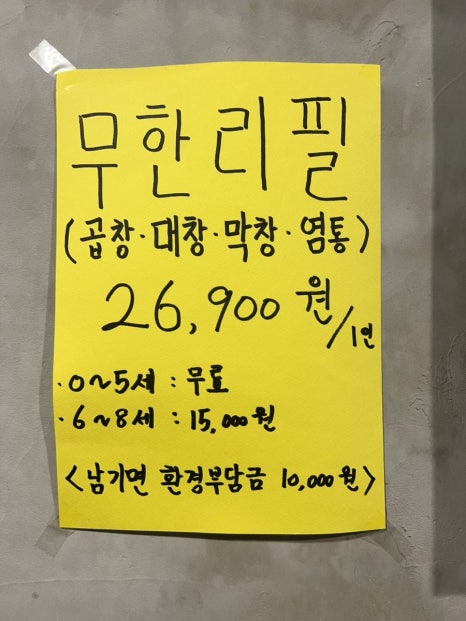 무한리필
(곱창·대창·막창·염통)
26,900원/1인
·0~5세 : 무료
·6~8세 : 15,000원
<남기면 환경부담금 10,000원>